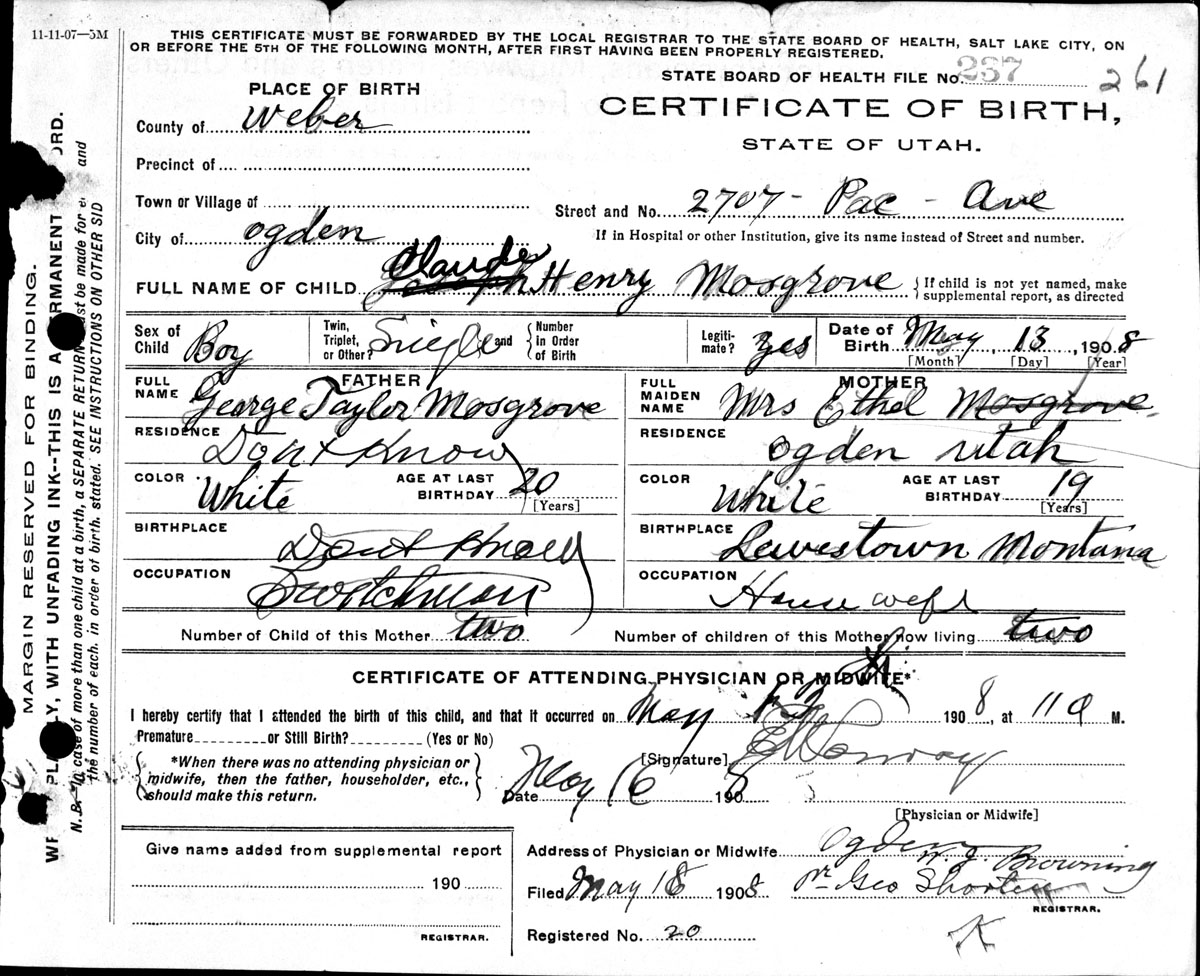 11-11-07—5M
THIS CERTIFICATE MUST BE FORWARDED BY THE LOCAL REGISTRAR TO THE STATE BOARD OF HEALTH, SALT LAKE CITY, ON
OR BEFORE THE 5TH OF THE FOLLOWING MONTH, AFTER FIRST HAVING BEEN PROPERLY REGISTERED.
STATE BOARD OF HEALTH FILE No. 237 261
PLACE OF BIRTH
CERTIFICATE OF BIRTH,
STATE OF UTAH.
County of Weber
Precinct of
Town or Village of
Street and No. 2707 - Pac - Ave
City of Ogden
If in Hospital or other Institution, give its name instead of Street and number.
Claude
FULL NAME OF CHILD Joseph Henry Mosgrove { If child is not yet named, make supplemental report, as directed
Sex of Child Boy Twin, Triplet, or Other? Single and { Number in Order of Birth Legiti-mate? Yes Date of Birth May, 13, 1908
[Month] [Day] [Year]
FATHER MOTHER
FULL NAME George Taylor Mosgrove FULL MAIDEN NAME Mrs Ethel Mosgrove
RESIDENCE Dont Know RESIDENCE Ogden Utah
COLOR White AGE AT LAST BIRTHDAY 20 [Years] COLOR White AGE AT LAST BIRTHDAY 19 [Years]
BIRTHPLACE Dont Know BIRTHPLACE Lewestown Montana
OCCUPATION Switchman OCCUPATION House wife
Number of Child of this Mother two Number of children of this Mother now living two
CERTIFICATE OF ATTENDING PHYSICIAN OR MIDWIFE*
I hereby certify that I attended the birth of this child, and that it occurred on May 13 1908, at 11 a M.
Premature or Still Birth? (Yes or No)
[Signature] Conroy
{ *When there was no attending physician or midwife, then the father, householder, etc., should make this return. }
Date May 16 1908
[Physician or Midwife]
Give name added from supplemental report
190
REGISTRAR.
Address of Physician or Midwife Ogden
W. J. Browning
Filed May 18 1908 pr Geo Shorten
REGISTRAR.
Registered No. 20
K
MARGIN RESERVED FOR BINDING.
PLAINLY, WITH UNFADING INK--THIS IS A PERMANENT RECORD.
N.B.--In case of more than one child at a birth, a SEPARATE RETURN must be made for and
the number of each, in order of birth, stated. SEE INSTRUCTIONS ON OTHER SID